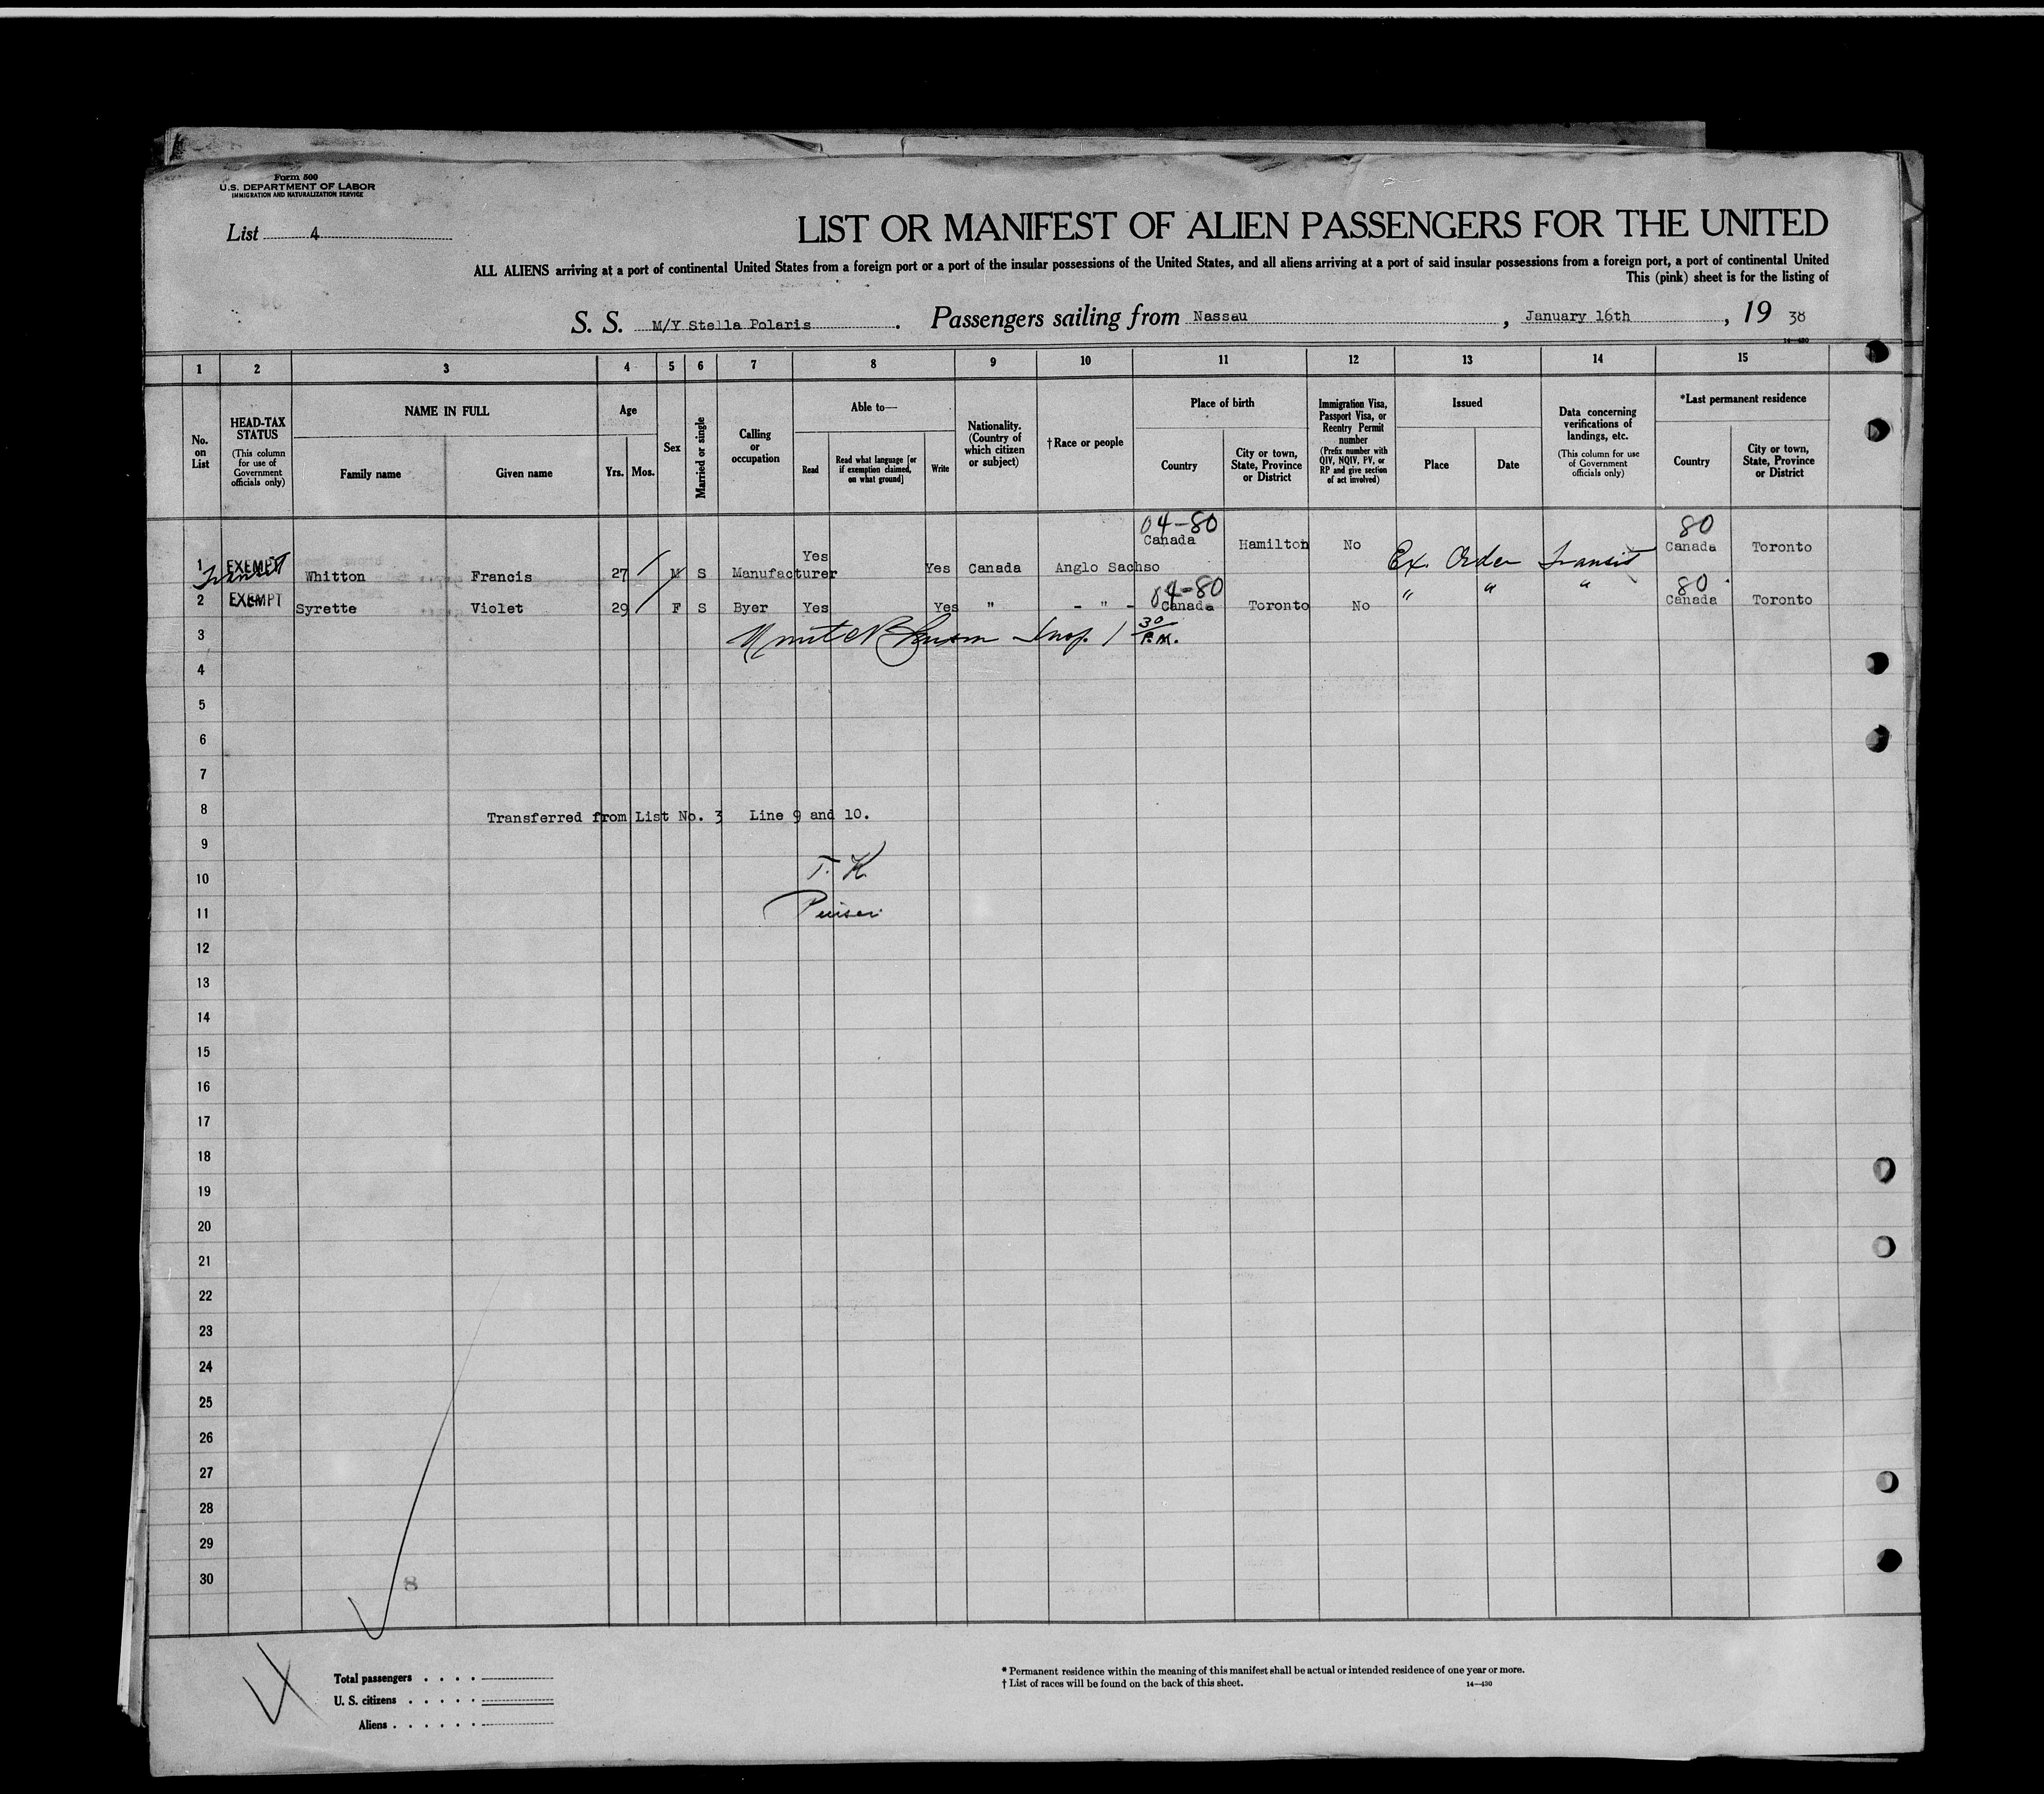 Form 500
U.S. DEPARTMENT OF LABOR
IMMIGRATION AND NATURALIZATION SERVICE
List 4
LIST OR MANIFEST OF ALIEN PASSENGERS FOR THE UNITED
ALL ALIENS arriving at a port of continental United States from a foreign port or a port of the insular possessions of the United States, and all aliens arriving at a port of said insular possessions from a foreign port, a port of continental United
This (pink) sheet is for the listing of
S. S. M/Y Stella Polaris. Passengers sailing from Nassau, January 16th, 19 38
14—430
1 2 3 4 5 6 7 8 9 10 11 12 13 14 15
No. on List
HEAD-TAX STATUS (This column for use of Government officials only)
NAME IN FULL
Family name
Given name
Age
Yrs. Mos.
Sex
Married or single
Calling or occupation
Able to—
Read
Read what language [or if exemption claimed, on what ground]
Write
Nationality. (Country of which citizen or subject)
†Race or people
Place of birth
Country
City or town, State, Province or District
Immigration Visa, Passport Visa, or Reentry Permit number (Prefix number with QIV, NQIV, PV, or RP and give section of act involved)
Issued
Place
Date
Data concerning verifications of landings, etc. (This column for use of Government officials only)
*Last permanent residence
Country
City or town, State, Province or District
04-80 80
1 Transit EXEMPT Whitton Francis 27 M S Manufacturer Yes Yes Canada Anglo Sachso Canada Hamilton No Ex. Order Transit Canada Toronto
04-80 80
2 EXEMPT Syrette Violet 29 F S Byer Yes Yes " - " - Canada Toronto No " " " Canada Toronto
3 Insp. 1 30 P.M.
4
5
6
7
8 Transferred from List No. 3 Line 9 and 10.
9
10 T. K
11 Purser
12
13
14
15
16
17
18
19
20
21
22
23
24
25
26
27
28
29
30
8
Total passengers
U. S. citizens
Aliens
* Permanent residence within the meaning of this manifest shall be actual or intended residence of one year or more.
† List of races will be found on the back of this sheet.
14—430